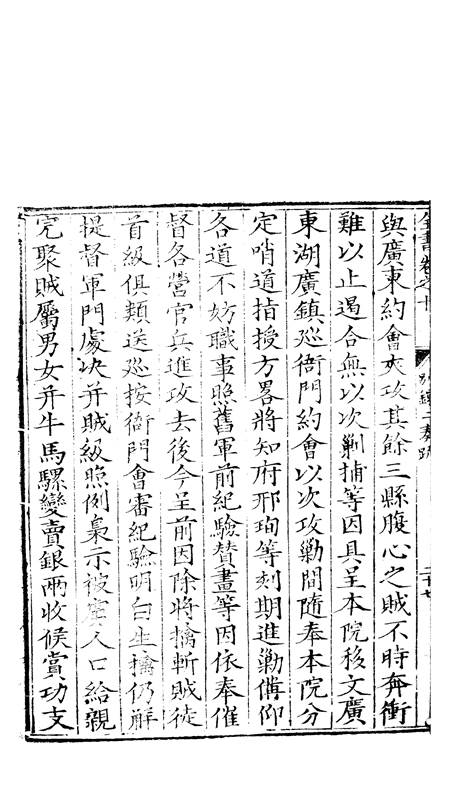 全書卷之十 別錄二奏疏 二十七
與廣東約會夾攻其餘三縣腹心之賊不時奔衝
難以止遏合無以次剿捕等因具呈本院移文廣
東湖廣鎮巡衙門約會以次攻勦間隨奉本院分
定哨道指授方畧將知府邢珣等刻期進勦備仰
各道不妨職事照舊軍前紀驗賛畫等因依奉催
督各營官兵進攻去後今呈前因除將擒斬賊徒
首級俱類送巡按衙門會審紀驗明白生擒仍解
提督軍門處决并賊級照例梟示被虜人口給親
完聚賊屬男女并牛馬騾變賣銀兩收候賞功支